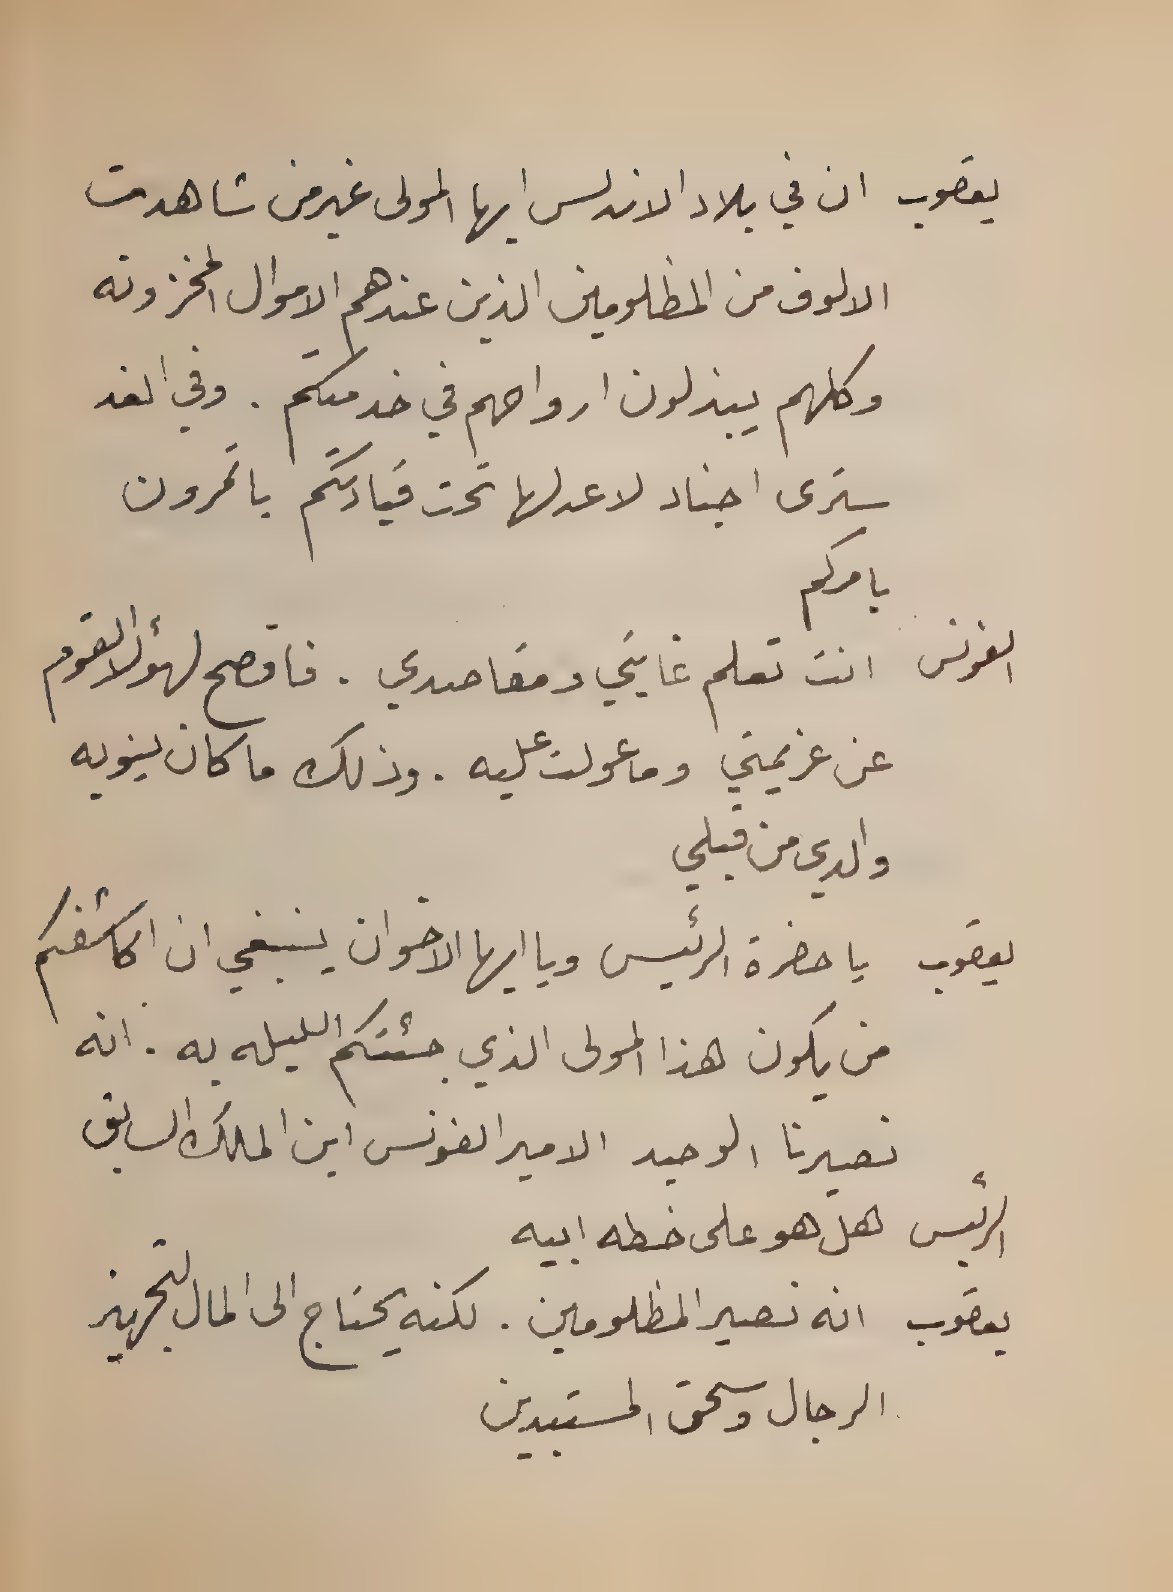 يعقوب ان في بلاد الاندلس ايها المولى غير من شاهدت
الالوف من المظلومين الذين عندهم الاموال المخزونه
وكلهم يبذلون ارواحهم في خدمتكم . وفي الغد
سترى اجناد لا عد لها تحت قيادتكم ياتمرون
بامركم
الفونس انت تعلم غايتي ومقاصدي . فافصح لهؤلا القوم
عن عزيمتي وما عولت عليه . وذلك ما كان ينويه
والدي من قبلي
يعقوب يا حضرة الرئيس ويا ايها الاخوان ينبغي ان اكاشفكم
من يكون هذا المولى الذي جئتكم الليله به . انه
نصيرنا الوحيد الامير الفونس ابن الملك السابق
الرئيس هل هو على خطه ابيه
يعقوب انه نصير المظلومين . لكنه يحتاج الى المال لتجهيز
الرجال وسحق المستبدين